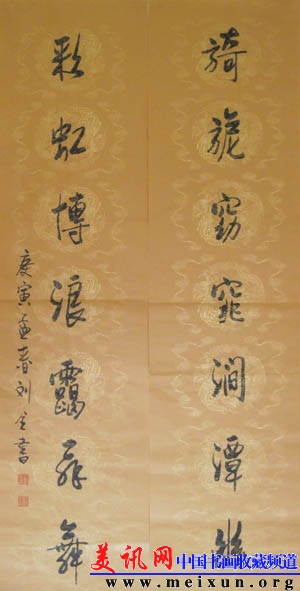 旖旎窈窕澗潭
彩虹博浪靄舞
庚寅孟春刘书
美讯网 中国书画收藏频道
www.meixun.org